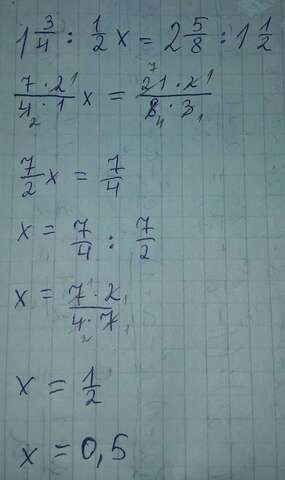 1 3/4 : 1/2 x = 2 5/8 : 1 1/2
7·2/4·1 x = 21·2/8·3
7/2 x = 7/4
x = 7/4 : 7/2
x = 7·2/4·7
x = 1/2
x = 0,5